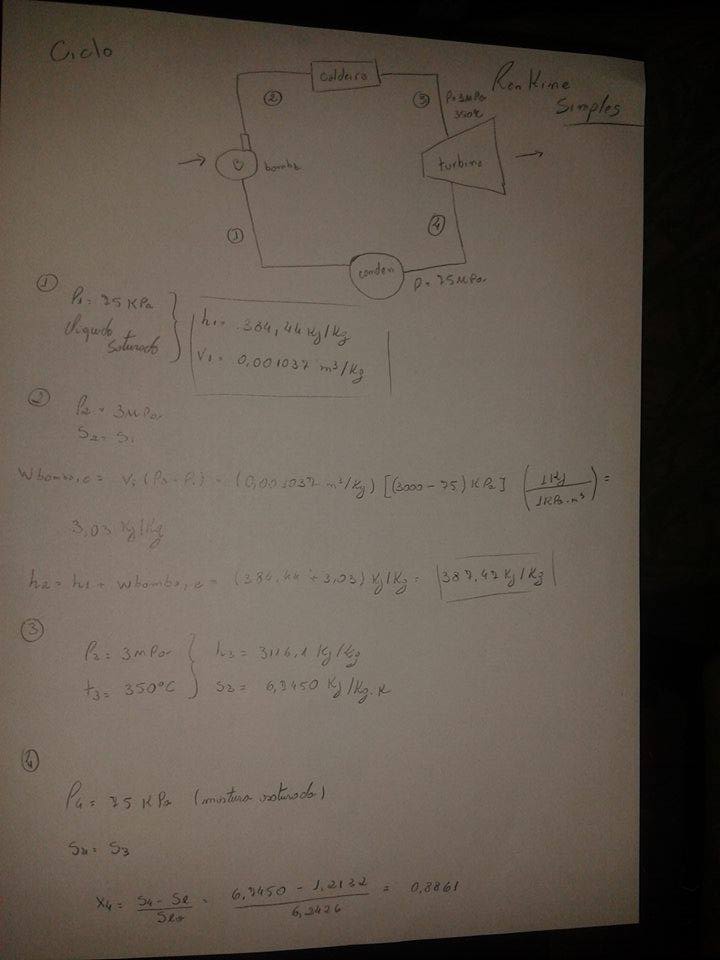 Ciclo
Rankine
Simples
caldeira
②
③
P=3MPa
350°C
B
bomba
turbina
①
④
conden
P= 75MPa
①
P1= 75 KPa
líquido
saturado
h1= 384,44 Kj/Kg
V1= 0,001037 m³/Kg
②
P2= 3MPa
S2= S1
Wbomba,e = V1 (P2-P1) = (0,001037 m³/Kg) [(3000-75) KPa] (1Kj/1KPa.m³) =
3,03 Kj/Kg
h2 = h1 + Wbomba,e = (384,44 + 3,03) Kj/Kg = 387,47 Kj/Kg
③
P3= 3MPa
t3= 350°C
h3= 3116,1 Kj/Kg
S3= 6,7450 Kj/Kg.K
④
P4= 75 KPa (mistura saturada)
S4= S3
X4= S4-Sl/Slv = 6,7450 - 1,2132/6,2426 = 0,8861